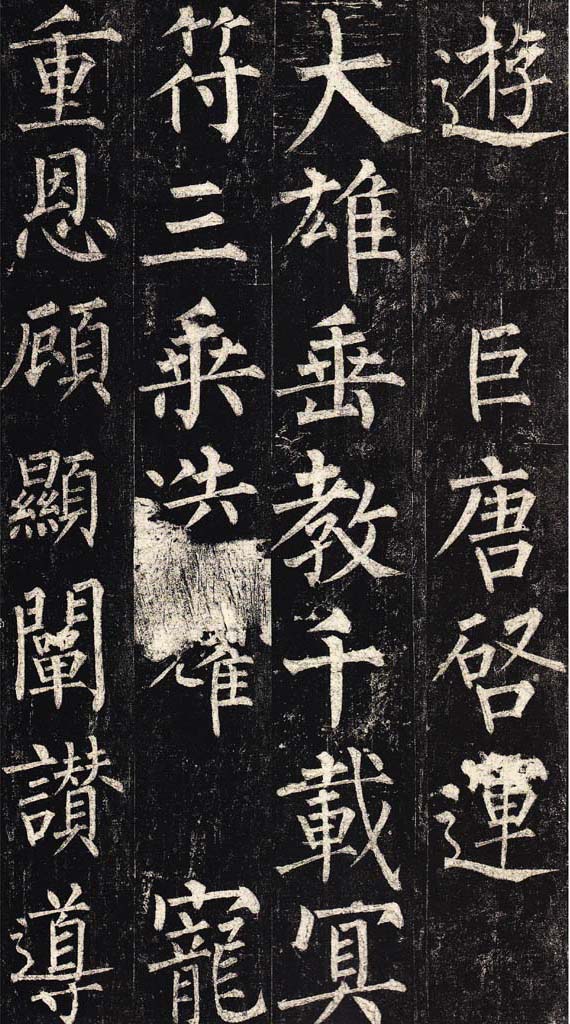 遊 巨唐啓運
大雄垂教千載冥
符三乘耀 寵
重恩顧顯闡讚導